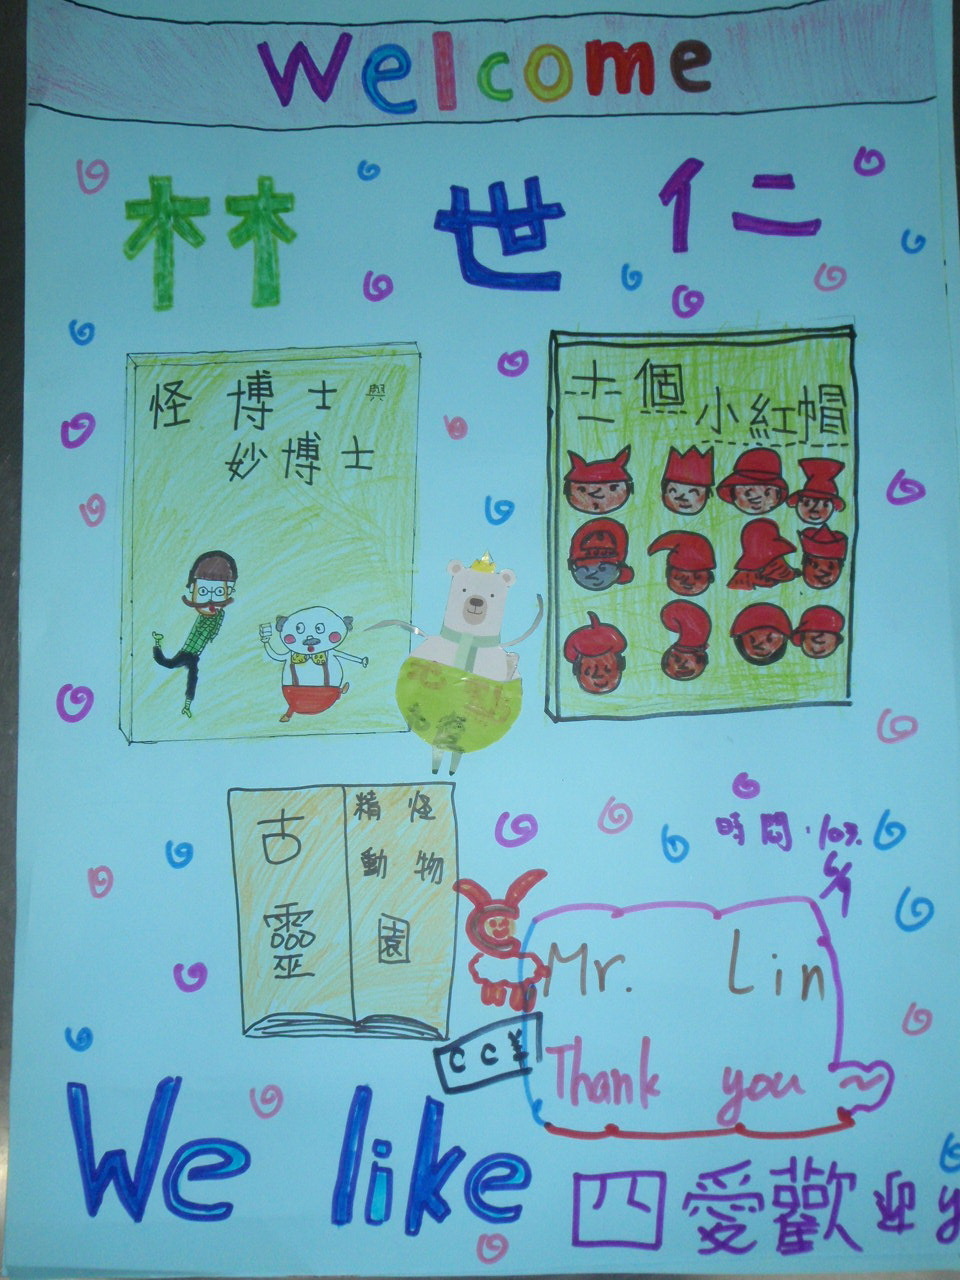 Welcome
林世仁
怪博士與
妙博士
十二個
小紅帽
古靈
精怪
動物
園
時間:103.
Mr. Lin
Thank you
CC羊
We like
四愛歡迎y